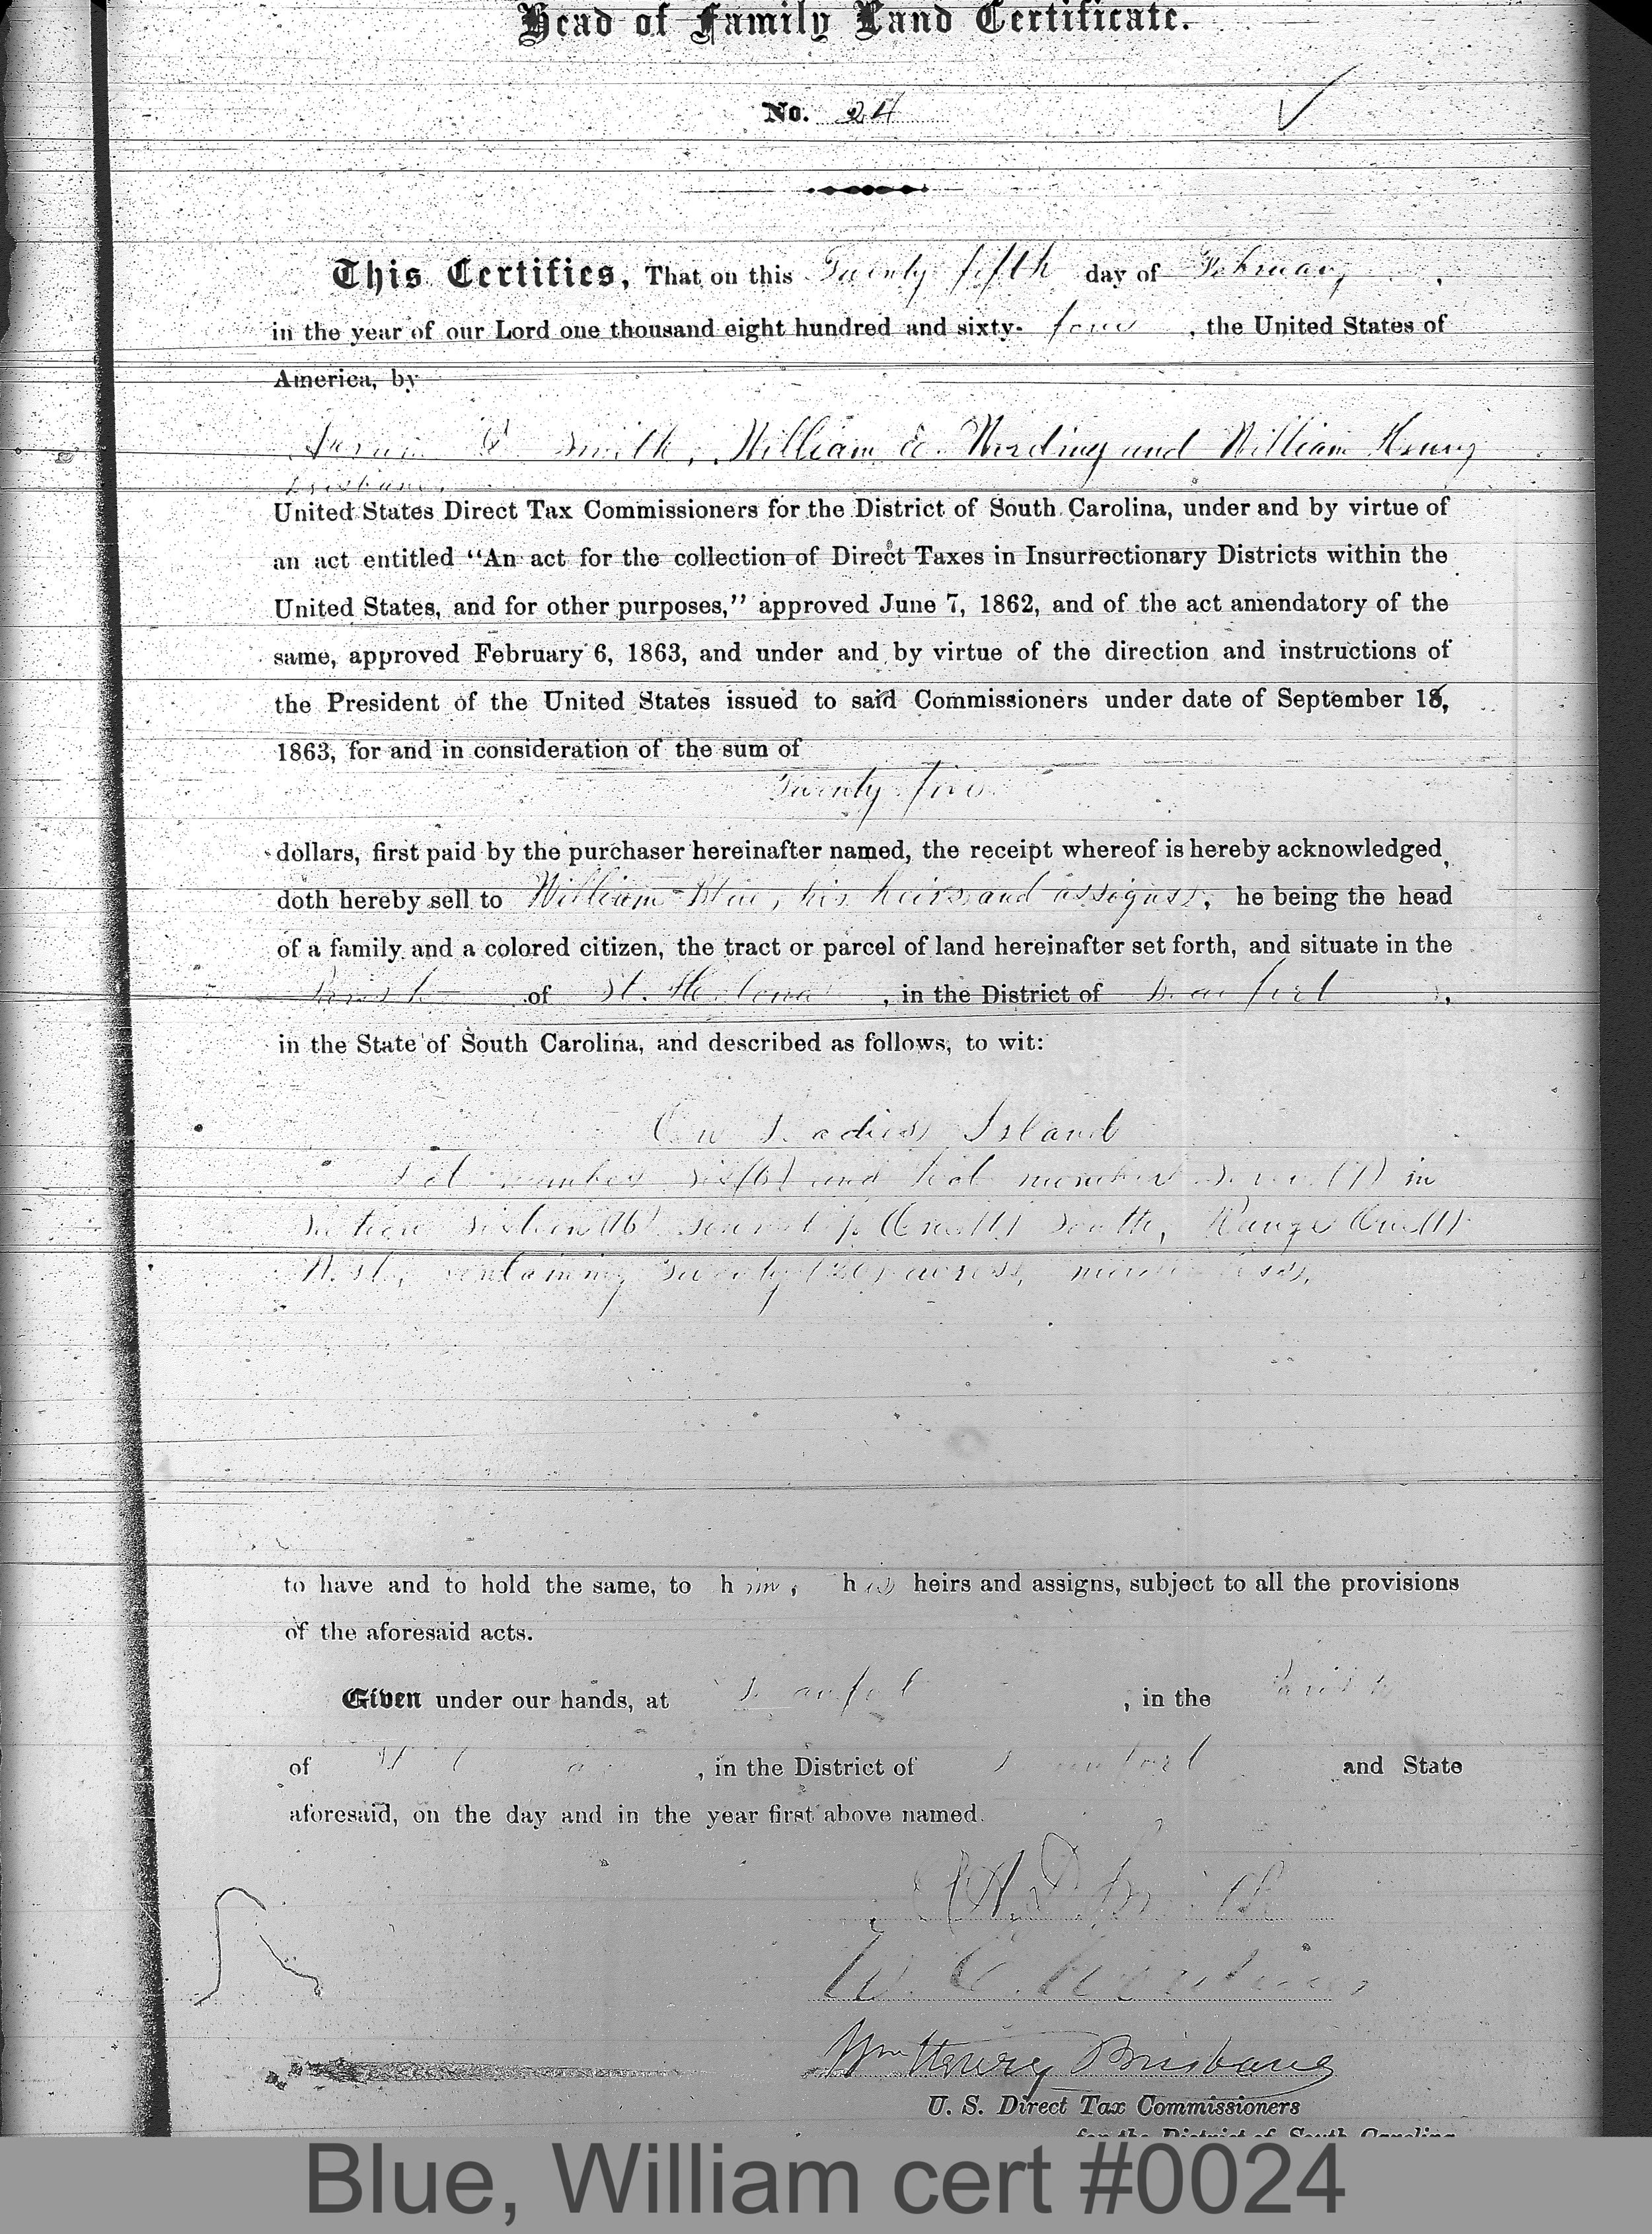 Head of Family Land Certificate.
No. 24
This Certifies, That on this Twenty fifth day of February,
in the year of our Lord one thousand eight hundred and sixty- four, the United States of
America, by
Smith, William E. Wording and William Henry
Brisbane,
United States Direct Tax Commissioners for the District of South Carolina, under and by virtue of
an act entitled “An act for the collection of Direct Taxes in Insurrectionary Districts within the
United States, and for other purposes,” approved June 7, 1862, and of the act amendatory of the
same, approved February 6, 1863, and under and by virtue of the direction and instructions of
the President of the United States issued to said Commissioners under date of September
1863, for and in consideration of the sum of
Twenty five
dollars, first paid by the purchaser hereinafter named, the receipt whereof is hereby acknowledged,
doth hereby sell to William Blue, his heirs and assigns, he being the head
of a family and a colored citizen, the tract or parcel of land hereinafter set forth, and situate in the
Parish of St. Helena, in the District of Beaufort,
in the State of South Carolina, and described as follows, to wit:
On Ladies Island
Lot number Six (6) and Lot number Seven (7) in
Section Sixteen (16) Township One (1) South, Range One (1)
West, containing Twenty (20) acres, more or less,
to have and to hold the same, to him, his heirs and assigns, subject to all the provisions
of the aforesaid acts.
Given under our hands, at Beaufort, in the Parish
of St. Helena, in the District of Beaufort and State
aforesaid, on the day and in the year first above named.
A. D. Smith
W. E. Wording
Wm Henry Brisbane
U. S. Direct Tax Commissioners
for the District of South Carolina
Blue, William cert #0024